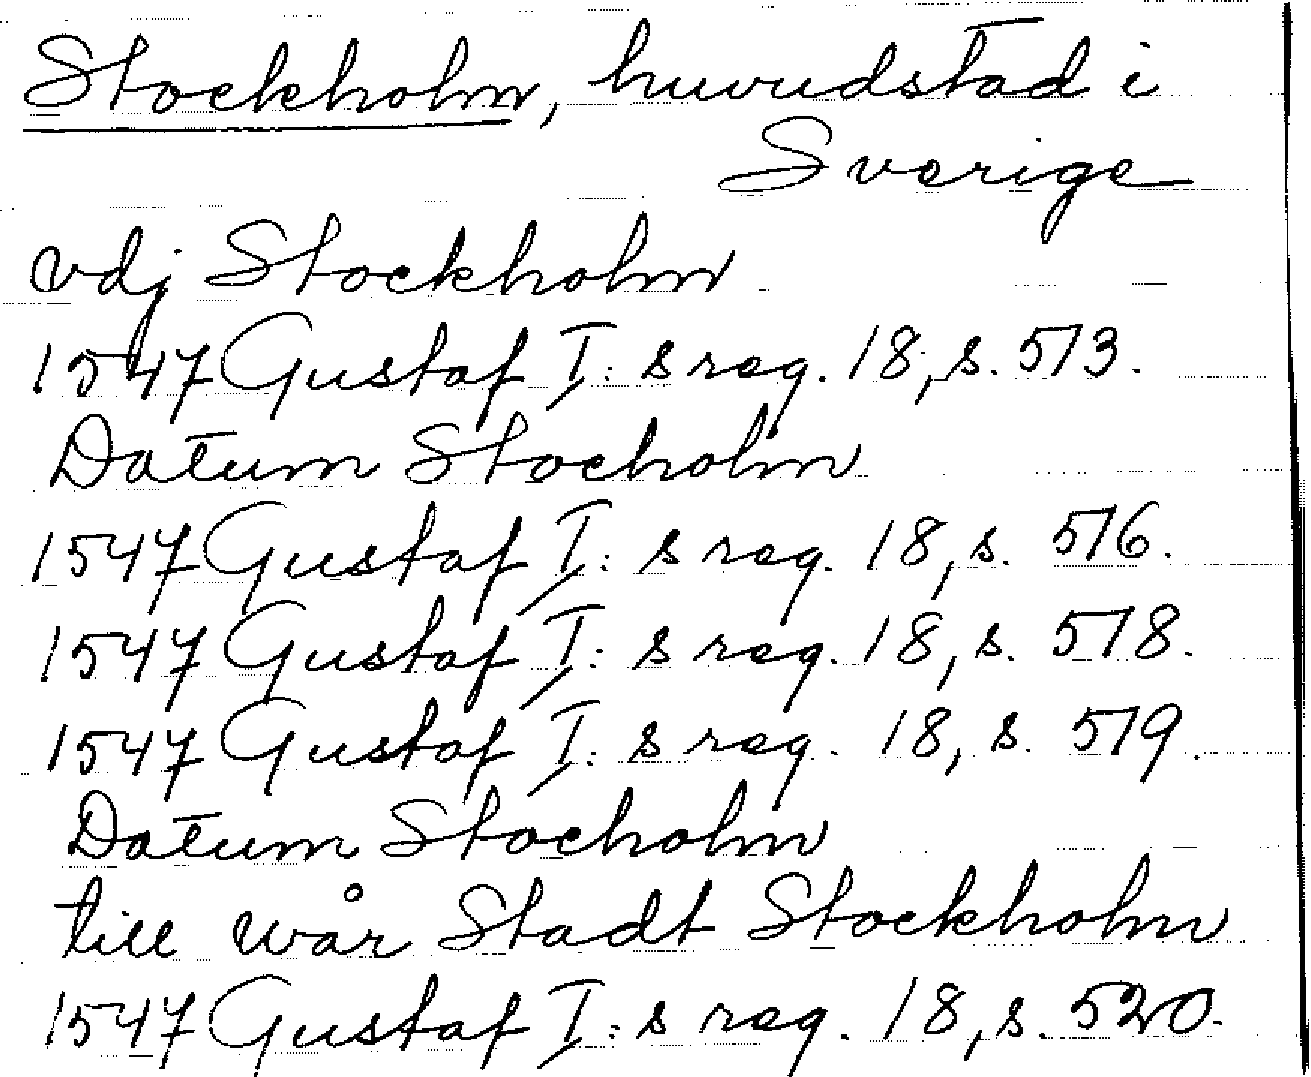 Stockholm, huvudstad i
Sverige
vdj Stockholm
1547 Gustaf I: s reg. 18, s. 513.
Datum Stocholm
1547 Gustaf I: s reg. 18, s. 516.
1547 Gustaf I: s reg. 18, s. 518.
1547 Gustaf I: s reg. 18, s. 519.
Datum Stocholm
till wår Stadt Stockholm
1547 Gustaf I: s reg. 18, s. 520.